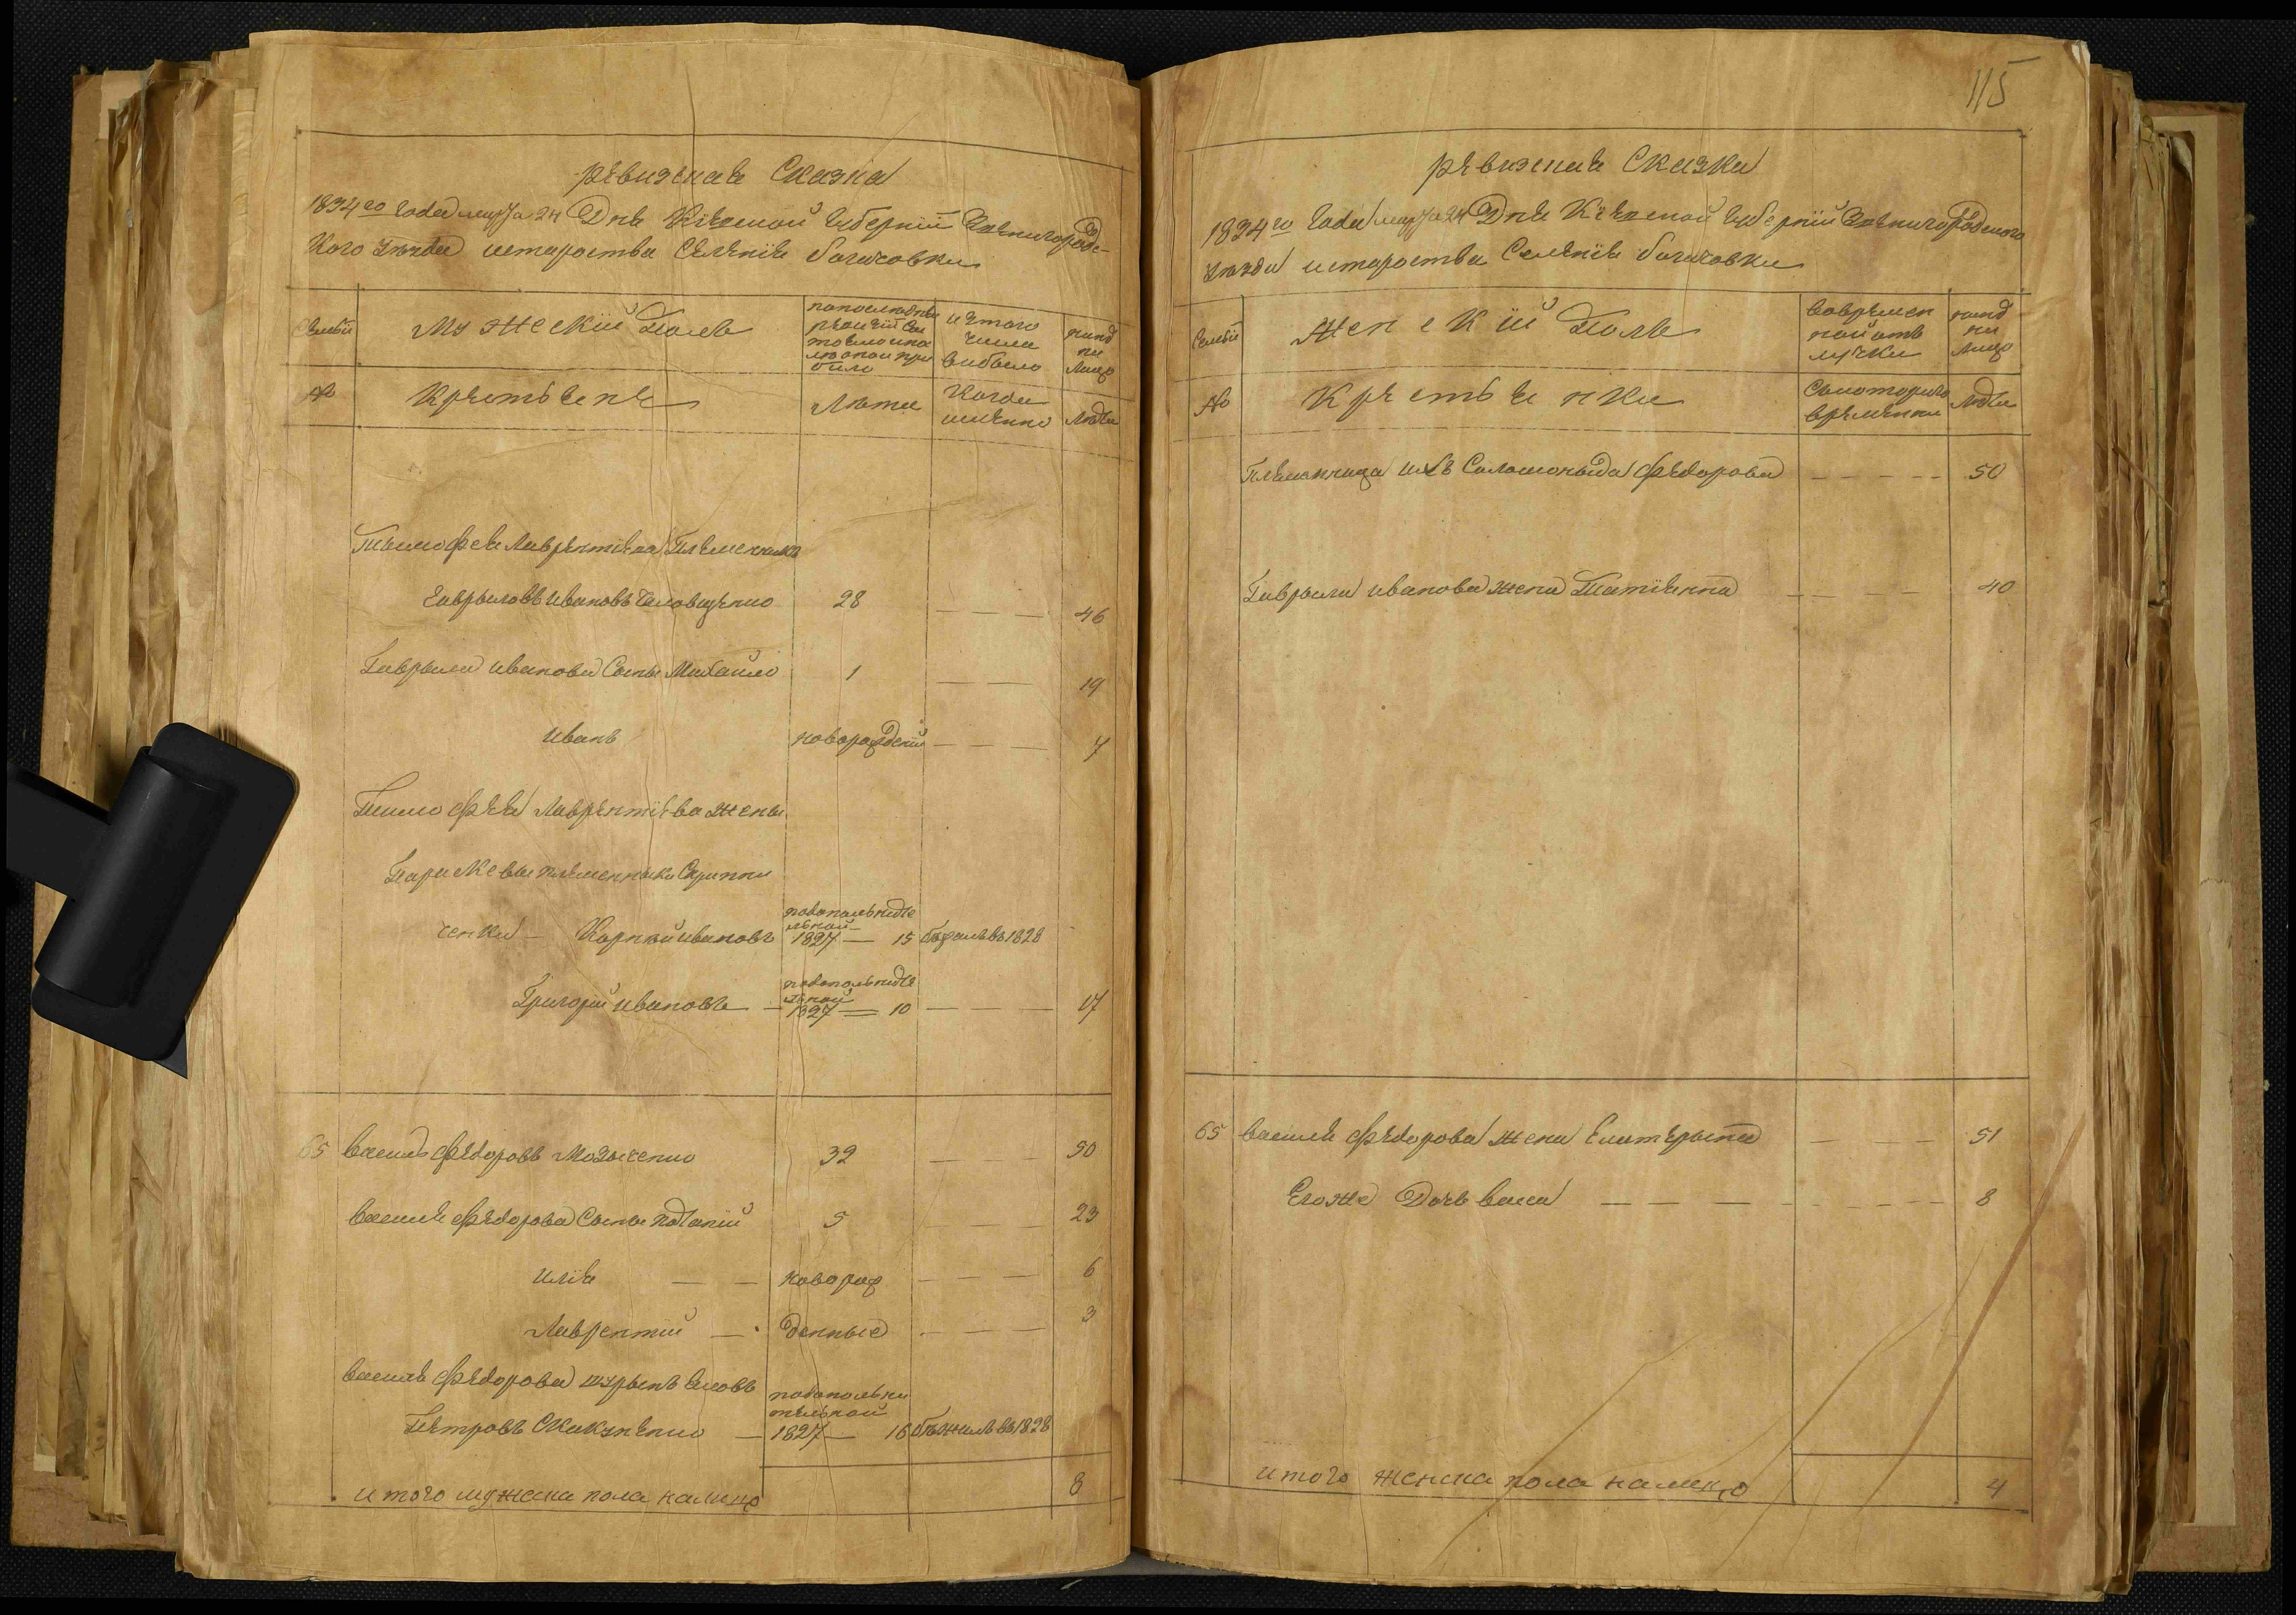 ревизская Сказка
1834го года марта 24 Дня Киевской губернии Звенигородс-
кого уезда староства Селения богачовки
Семьи
Мужескій Полъ
по последней ревизіи состояло и после оной прибыло
из того числа выбыло
ныне на лицо
№
Крестьяне
Лета
Когда именно
Лета
Тимофея Лаврентіева Племенникъ
Гаврыловъ ивановъ
28
46
Гаврыла иванова Сынъ Михайло
1
19
иванъ
новорожденій
7
Тимофея Лаврентіева жены
Параскевы племенники Скрипни
ченки Корнѣй ивановъ
1827 — 15
бѣжалъ въ 1828
Григорій ивановъ
1827 — 10
17
65
василь Федоровъ Мозыченко
32
50
василя Федорова Сынъ
5
23
илія
новорож
6
Лаврентій
денные
3
василя Федорова шурынъ
Петровъ Скакуненко
дополнительной
1827 — 16
бѣжалъ въ 1828
итого мужеска пола налицо
8
115
ревизская Сказка
1834го года марта 24 Дня Киевской губерніи Звенигородского
уезда староства Селенія богачовки
Семьи
Женскій Полъ
во временной отлучке
ныне на лицо
№
Крестьянки
С которого времени
Лета
Племянница ихъ Соломоныда Федорова
50
Гаврыла иванова жена Татіянна
40
65
василя Федорова жена Екатерына
51
Егоже Дочь васса
8
итого женска пола налицо
4